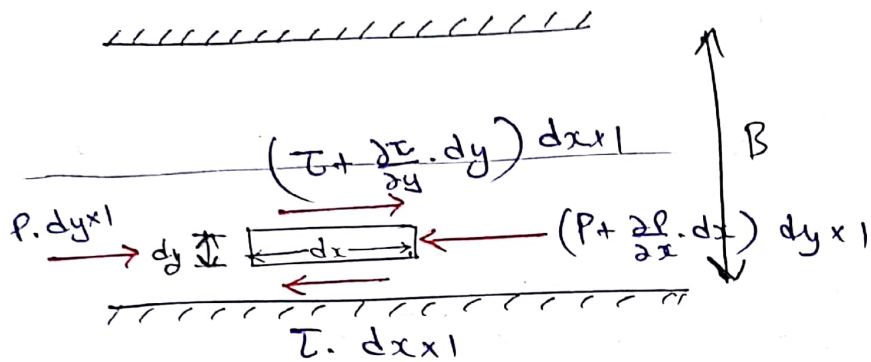 (τ + ∂τ/∂y . dy) dx×1
B
P. dy×1
dy
dx
(P + ∂P/∂x . dx) dy × 1
τ. dx×1